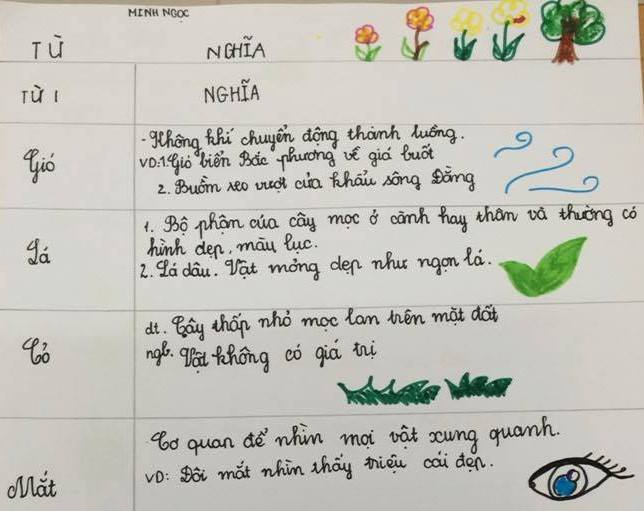 MINH NGỌC
TỪ NGHĨA
TỪ 1 NGHĨA
Gió
- Không khí chuyển động thành luồng.
VD:1.Gió biển Bắc phương về giá buốt
2. Buồm xeo vượt cửa khẩu sông Đằng
Lá
1. Bộ phận của cây mọc ở cành hay thân và thường có
hình dẹp, màu lục.
2. Lá dâu. Vật mỏng dẹp như ngọn lá.
Cỏ
dt. Cây thấp nhỏ mọc lan trên mặt đất
ngb. Vật không có giá trị
Mắt
Cơ quan để nhìn mọi vật xung quanh.
VD: Đôi mắt nhìn thấy triệu cái đẹp.